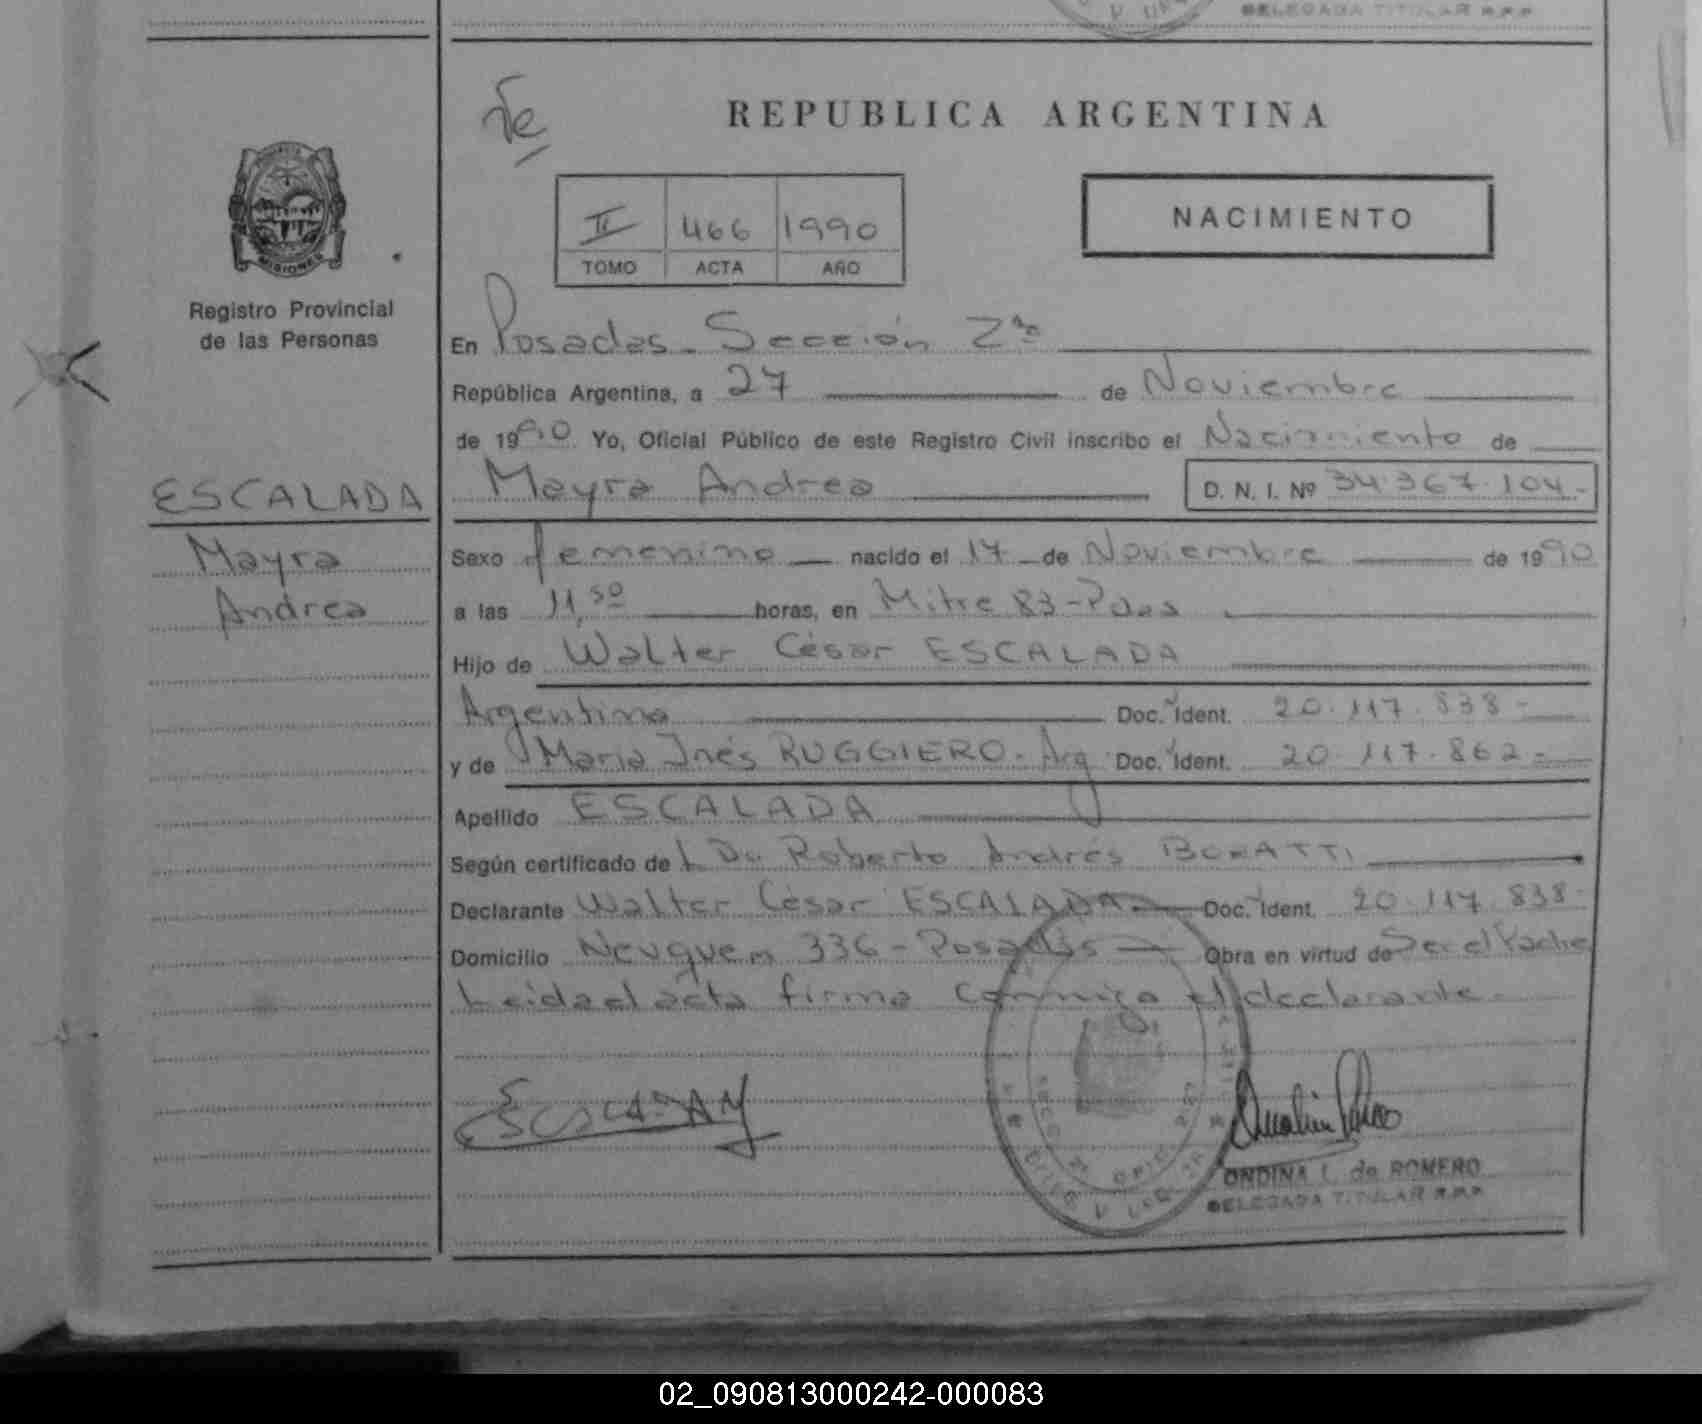 DELEGADA TITULAR R.P.P.
REPUBLICA ARGENTINA
II 466 1990
TOMO ACTA AÑO
NACIMIENTO
MISIONES
Registro Provincial
de las Personas
En Posadas - Sección 2da
República Argentina, a 27 de Noviembre
de 1990 Yo, Oficial Público de este Registro Civil inscribo el Nacimiento de
ESCALADA
Mayra Andrea D. N. I. Nº 34.367.104.-
Mayra
Andrea
Sexo femenino nacido el 17 de Noviembre de 1990
a las 11,50 horas, en Mitre 83-Pdas
Hijo de Walter César ESCALADA
Argentino Doc. Ident. 20.117.838-
y de María Inés RUGGIERO. Arg. Doc. Ident. 20.117.862-
Apellido ESCALADA
Según certificado de Dr. Roberto Andrés
Declarante Walter César ESCALADA Doc. Ident. 20.117.838-
Domicilio Neuquen 336 - Posadas Obra en virtud de Ser el Padre
Leida el acta firma conmigo el declarante.
ONDINA L. de ROMERO
DELEGADA TITULAR R.P.P.
02_090813000242-000083